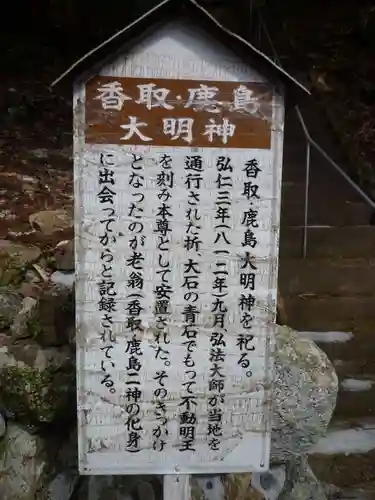 香取・鹿島
大明神
香取・鹿島大明神を祀る。
弘仁三年(八一二年九月、弘法大師が当地を
通行された折、大石の青石でもって不動明王
を刻み本尊として安置された。そのきっかけ
となったのが老翁(香取、鹿島二神の化身)
に出会ってからと記録されている。